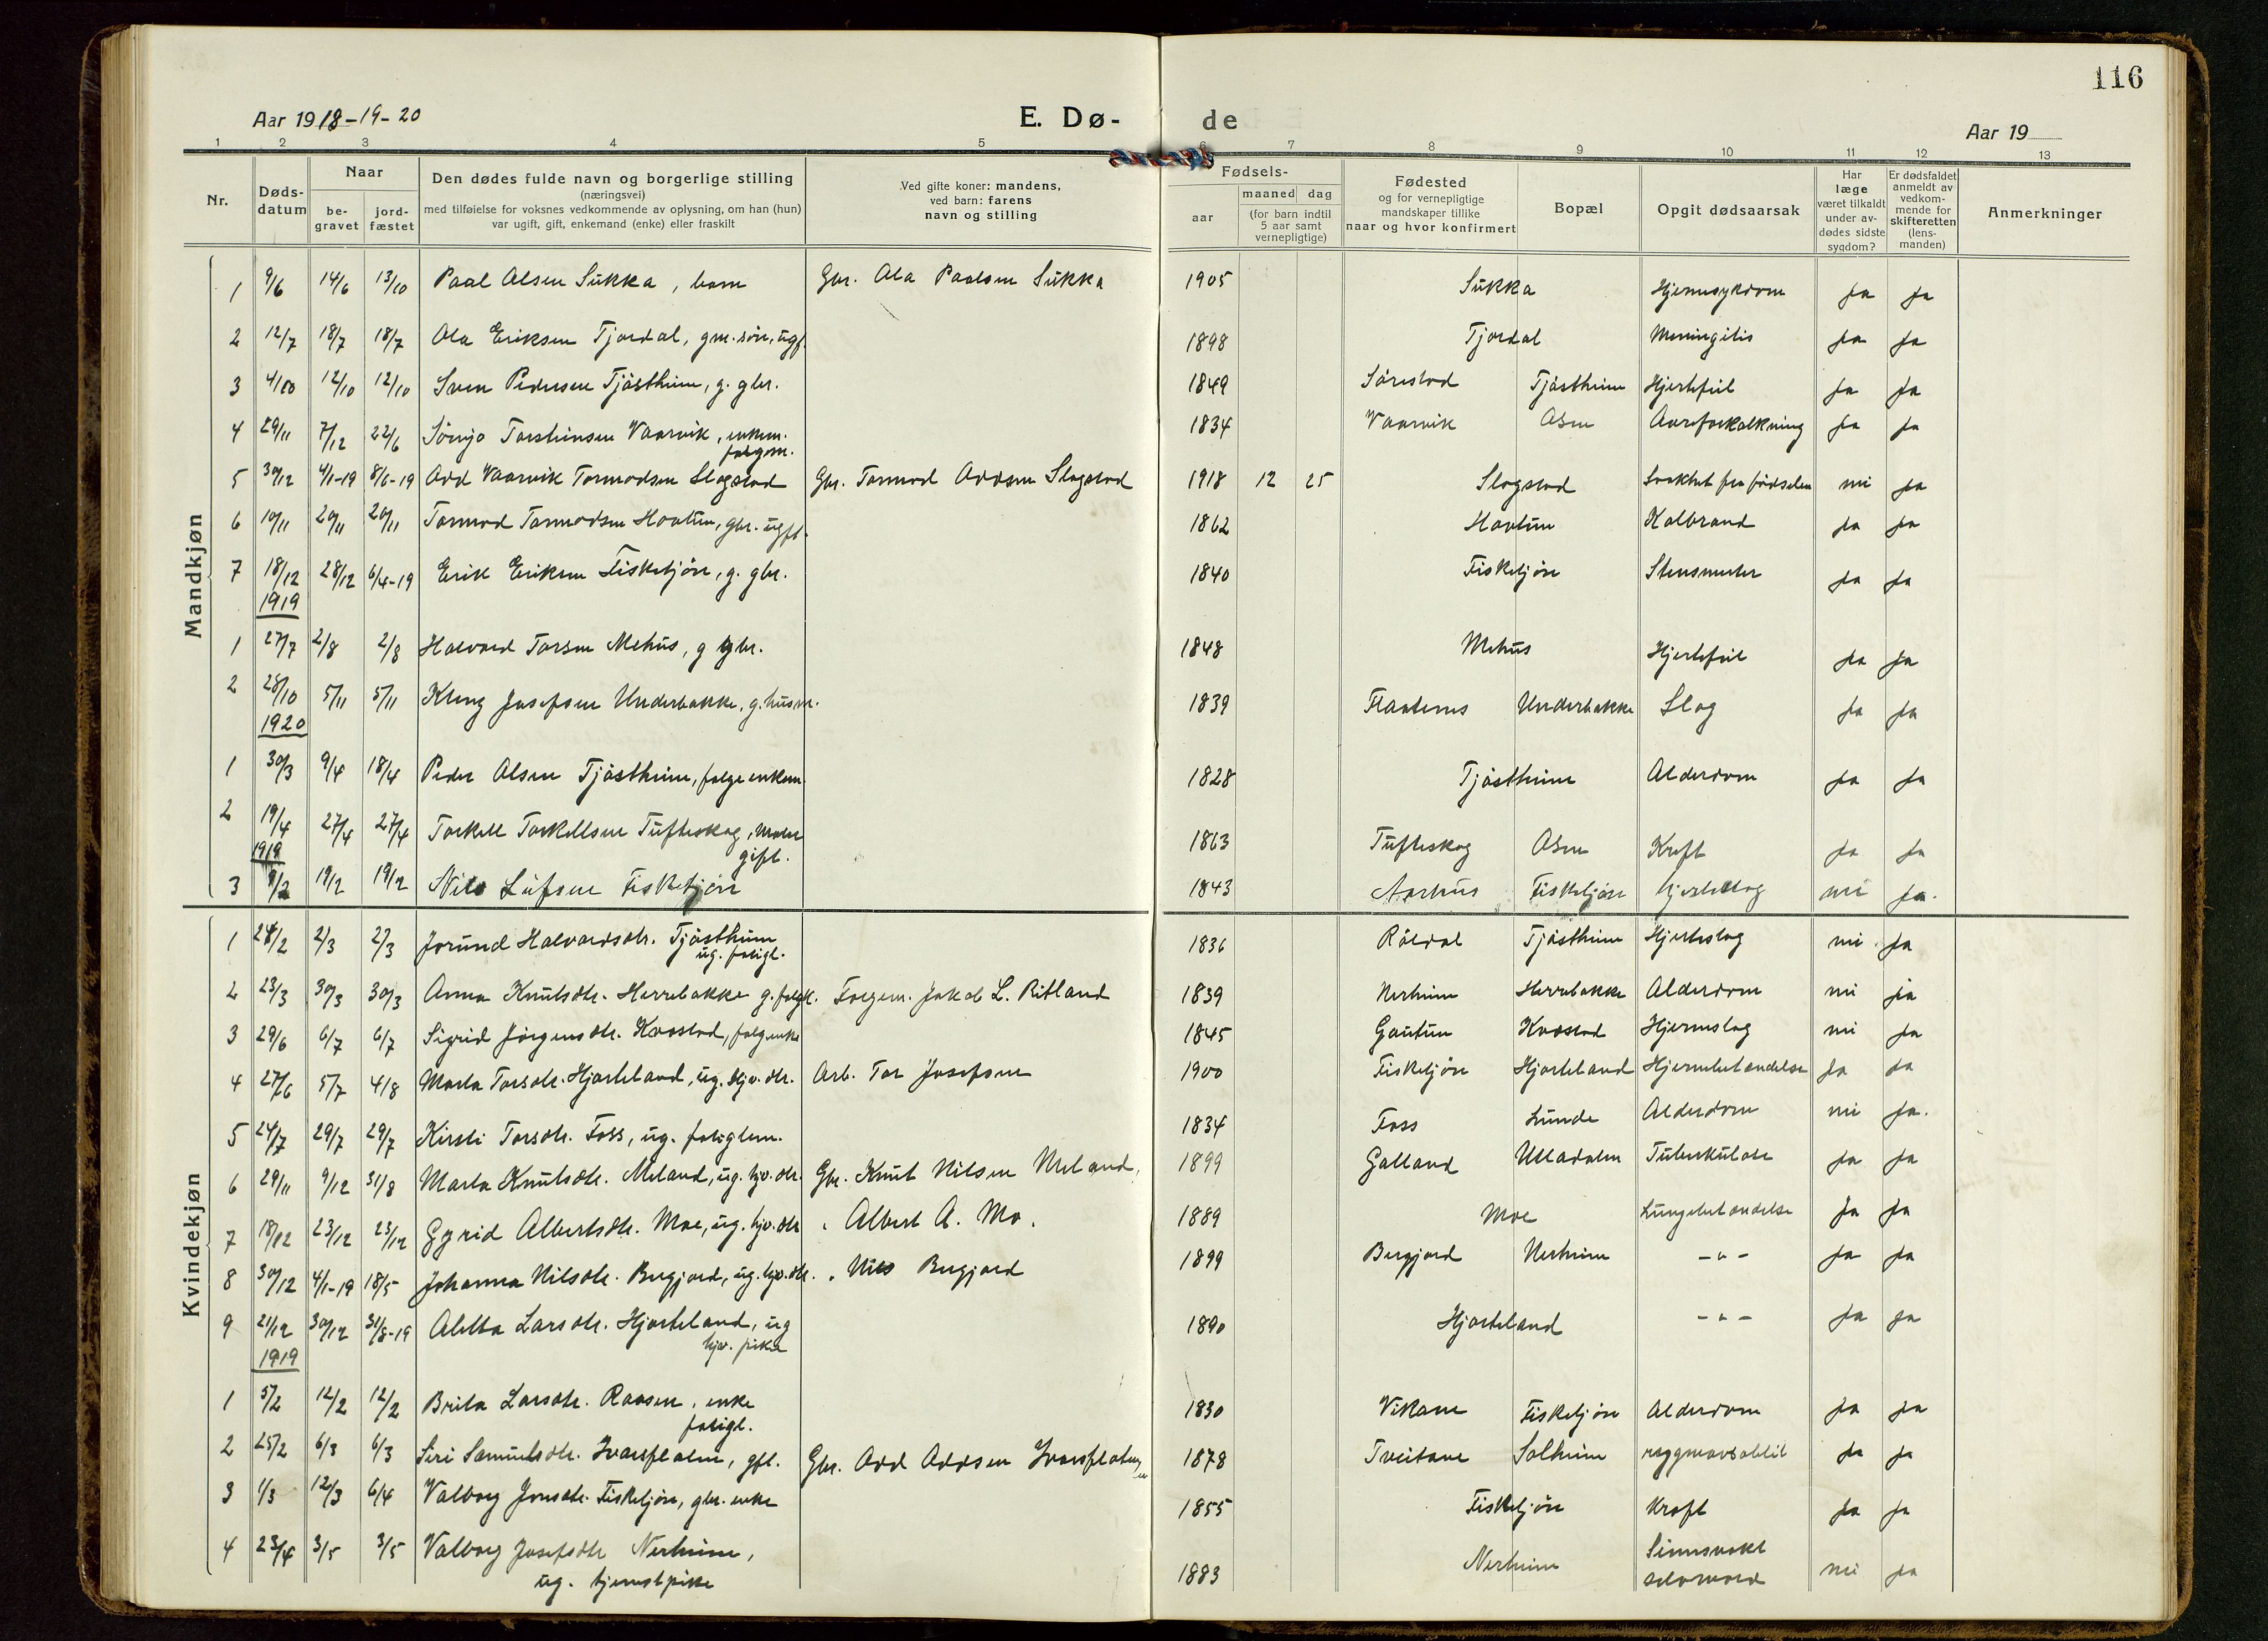 116
Aar 1918-19-20
E. Dø- de
Aar 19
1 2 3 4 5 6 7 8 9 10 11 12 13
Nr.
Døds-datum
Naar
be-gravet
jord-fæstet
Den dødes fulde navn og borgerlige stilling
(næringsvei)
med tilføielse for voksnes vedkommende av oplysning, om han (hun)
var ugift, gift, enkemand (enke) eller fraskilt
Ved gifte koner: mandens,
ved barn: farens
navn og stilling
Fødsels-
aar
maaned dag
(for barn indtil
5 aar samt
vernepligtige)
Fødested
og for vernepligtige
mandskaper tillike
naar og hvor konfirmert
Bopæl
Opgit dødsaarsak
Har
læge
været tilkaldt
under av-
dødes sidste
sygdom?
Er dødsfaldet
anmeldt av
vedkom-
mende for
skifteretten
(lens-
manden)
Anmerkninger
Mandkjøn
1 9/6 14/6 13/10 Paal Olsen Sukka, barn Gbr. Ola Paalsen Sukka 1905 Sukka Hjernesykdom ja ja
2 12/7 18/7 18/7 Ola Eriksen Tjordal, gm. søn, ugf. 1898 Tjordal Meningitis ja ja
3 12/10 12/10 Sven Pedersen Tjåstheim, g. gbr. 1849 Sørestad Tjåstheim Hjertefeil ja ja
4 29/11 7/12 22/6 Torsteinsen Vaarvik, enkem. 1834 Vaarvik Osen Aareforkalkning ja ja
5 30/12 4/1-19 8/6-19 Odd Vaarvik Tormodsen Slogstad Gbr. Tormod Oddsen Slogstad 1918 12 25 Slogstad Svakhet fra fødselen nei ja
6 10/11 20/11 20/11 Tormod Tormodsen Hovtun, gbr. ugft. 1862 Hovtun Kolbrand ja ja
7 18/12 28/12 6/4-19 Erik Eriksen Fisketjøn, g. gbr. 1840 Fisketjøn Stensmerter ja ja
1919
1 27/7 2/8 2/8 Halvard Torsen Mehus, g gbr. 1848 Mehus Hjertefeil ja ja
2 28/10 5/11 5/11 Kleng Josefsen Underbakke, g. husm. 1839 Flaatenes Underbakke Slag ja ja
1920
1 30/3 9/4 18/4 Peder Olsen Tjåstheim, folge enkem. 1828 Tjåstheim Alderdom ja ja
2 19/4 27/4 27/4 Torkell Torkellsen Tufteskog, maler
gift. 1863 Tufteskog Osen Kreft ja ja
1919
3 19/2 19/2 Nils Leifsen Fisketjøn 1843 Aarhus Fisketjøn hjerteslag nei ja.
Kvindekjøn
1 24/2 2/3 2/3 Jorund Halvardsdtr. Tjåstheim
ug. fatigl. 1836 Røldal Tjåstheim Hjerteslag nei ja
2 23/3 30/3 30/3 Anna Knutsdtr. Herrebakke g. folgk. Folgem. Jakob L. Ritland 1839 Nerheim Herrebakke Alderdom nei ja
3 29/6 6/7 6/7 Sigrid Jørgensdtr. Kvastad, folgenke 1845 Gautun Kvastad Hjerneslag nei ja
4 27/6 5/7 4/8 Marta Torsdtr. Hjorteland, ug. hjv. dtr. Arb. Tor Josefsen 1900 Fisketjøn Hjorteland Hjernebetændelse ja ja
5 24/7 29/7 29/7 Kirsti Torsdtr. Foss, ug. fatiglem. 1834 Foss Lunde Alderdom nei ja.
6 29/11 9/12 31/8 Marta Knutsdtr. Meland, ug. hjv. dtr. Gbr. Knut Nilsen Meland, 1899 Galland Ulladalen Tuberkulose ja ja
7 18/12 23/12 23/12 Gyrid Albertsdtr. Moe, ug. hjv. dtr. Albert A. Mo. 1889 Moe Lungebetændelse ja ja
8 30/12 4/1-19 18/5 Johanna Nilsdtr. Bergjord, ug. hjv. dtr. Nils Bergjord 1899 Bergjord Nerheim -"- ja ja
9 21/12 30/12 31/8-19 Aletta Larsdtr. Hjorteland, ug
hjv. pike 1890 Hjorteland -"- ja ja
1919
1 5/2 12/2 12/2 Brita Larsdtr. Raasen, enke
fatigl. 1830 Vikane Fisketjøn Alderdom ja ja
2 25/2 6/3 6/3 Siri Samuelsdtr. Ivarsflaten, gft. Gbr. Odd Oddsen Ivarsflaten 1878 Tveitane Solheim ja ja
3 1/3 12/3 6/4 Valborg Jonsdtr. Fisketjøn, gbr. enke 1855 Fisketjøn Kreft ja ja
4 23/4 3/5 3/5 Valborg Josefsdtr Nerheim,
ug. tjenestpike 1883 Nerheim Sinnsvakt
selvmord nei ja